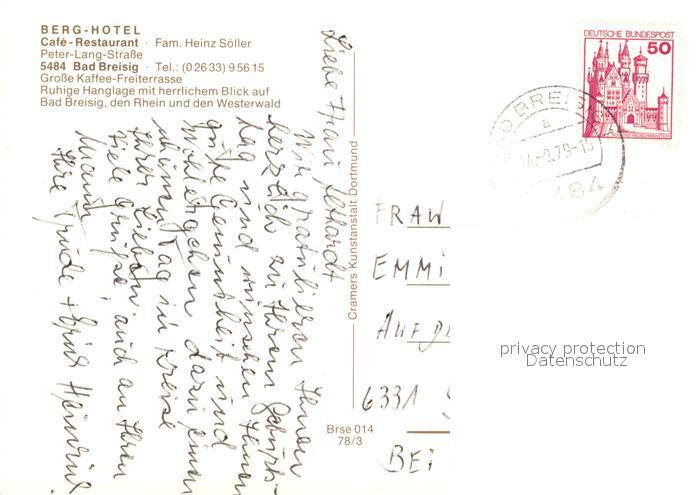 BERG-HOTEL
Café-Restaurant · Fam. Heinz Söller
Peter-Lang-Straße
5484 Bad Breisig · Tel.: (0 26 33) 9 56 15
Große Kaffee-Freiterrasse
Ruhige Hanglage mit herrlichem Blick auf
Bad Breisig, den Rhein und den Westerwald
Liebe Frau
Wir gratulieren Ihnen
herzlich zu Ihrem Geburts-
tag und wünschen Ihnen
gute Gesundheit und
Wohlergehen. Dazu einen
schönen Tag im Kreise
Ihrer Lieben.
Viele Grüße, auch an Ihren
Mann
Ihre Trude
Cramers Kunstanstalt Dortmund
Brse 014
78/3
DEUTSCHE BUNDESPOST
50
BAD BREISIG
a
14.-8.79-1
484
FRAU
EMMI
AUF
6331
BEI
privacy protection
Datenschutz